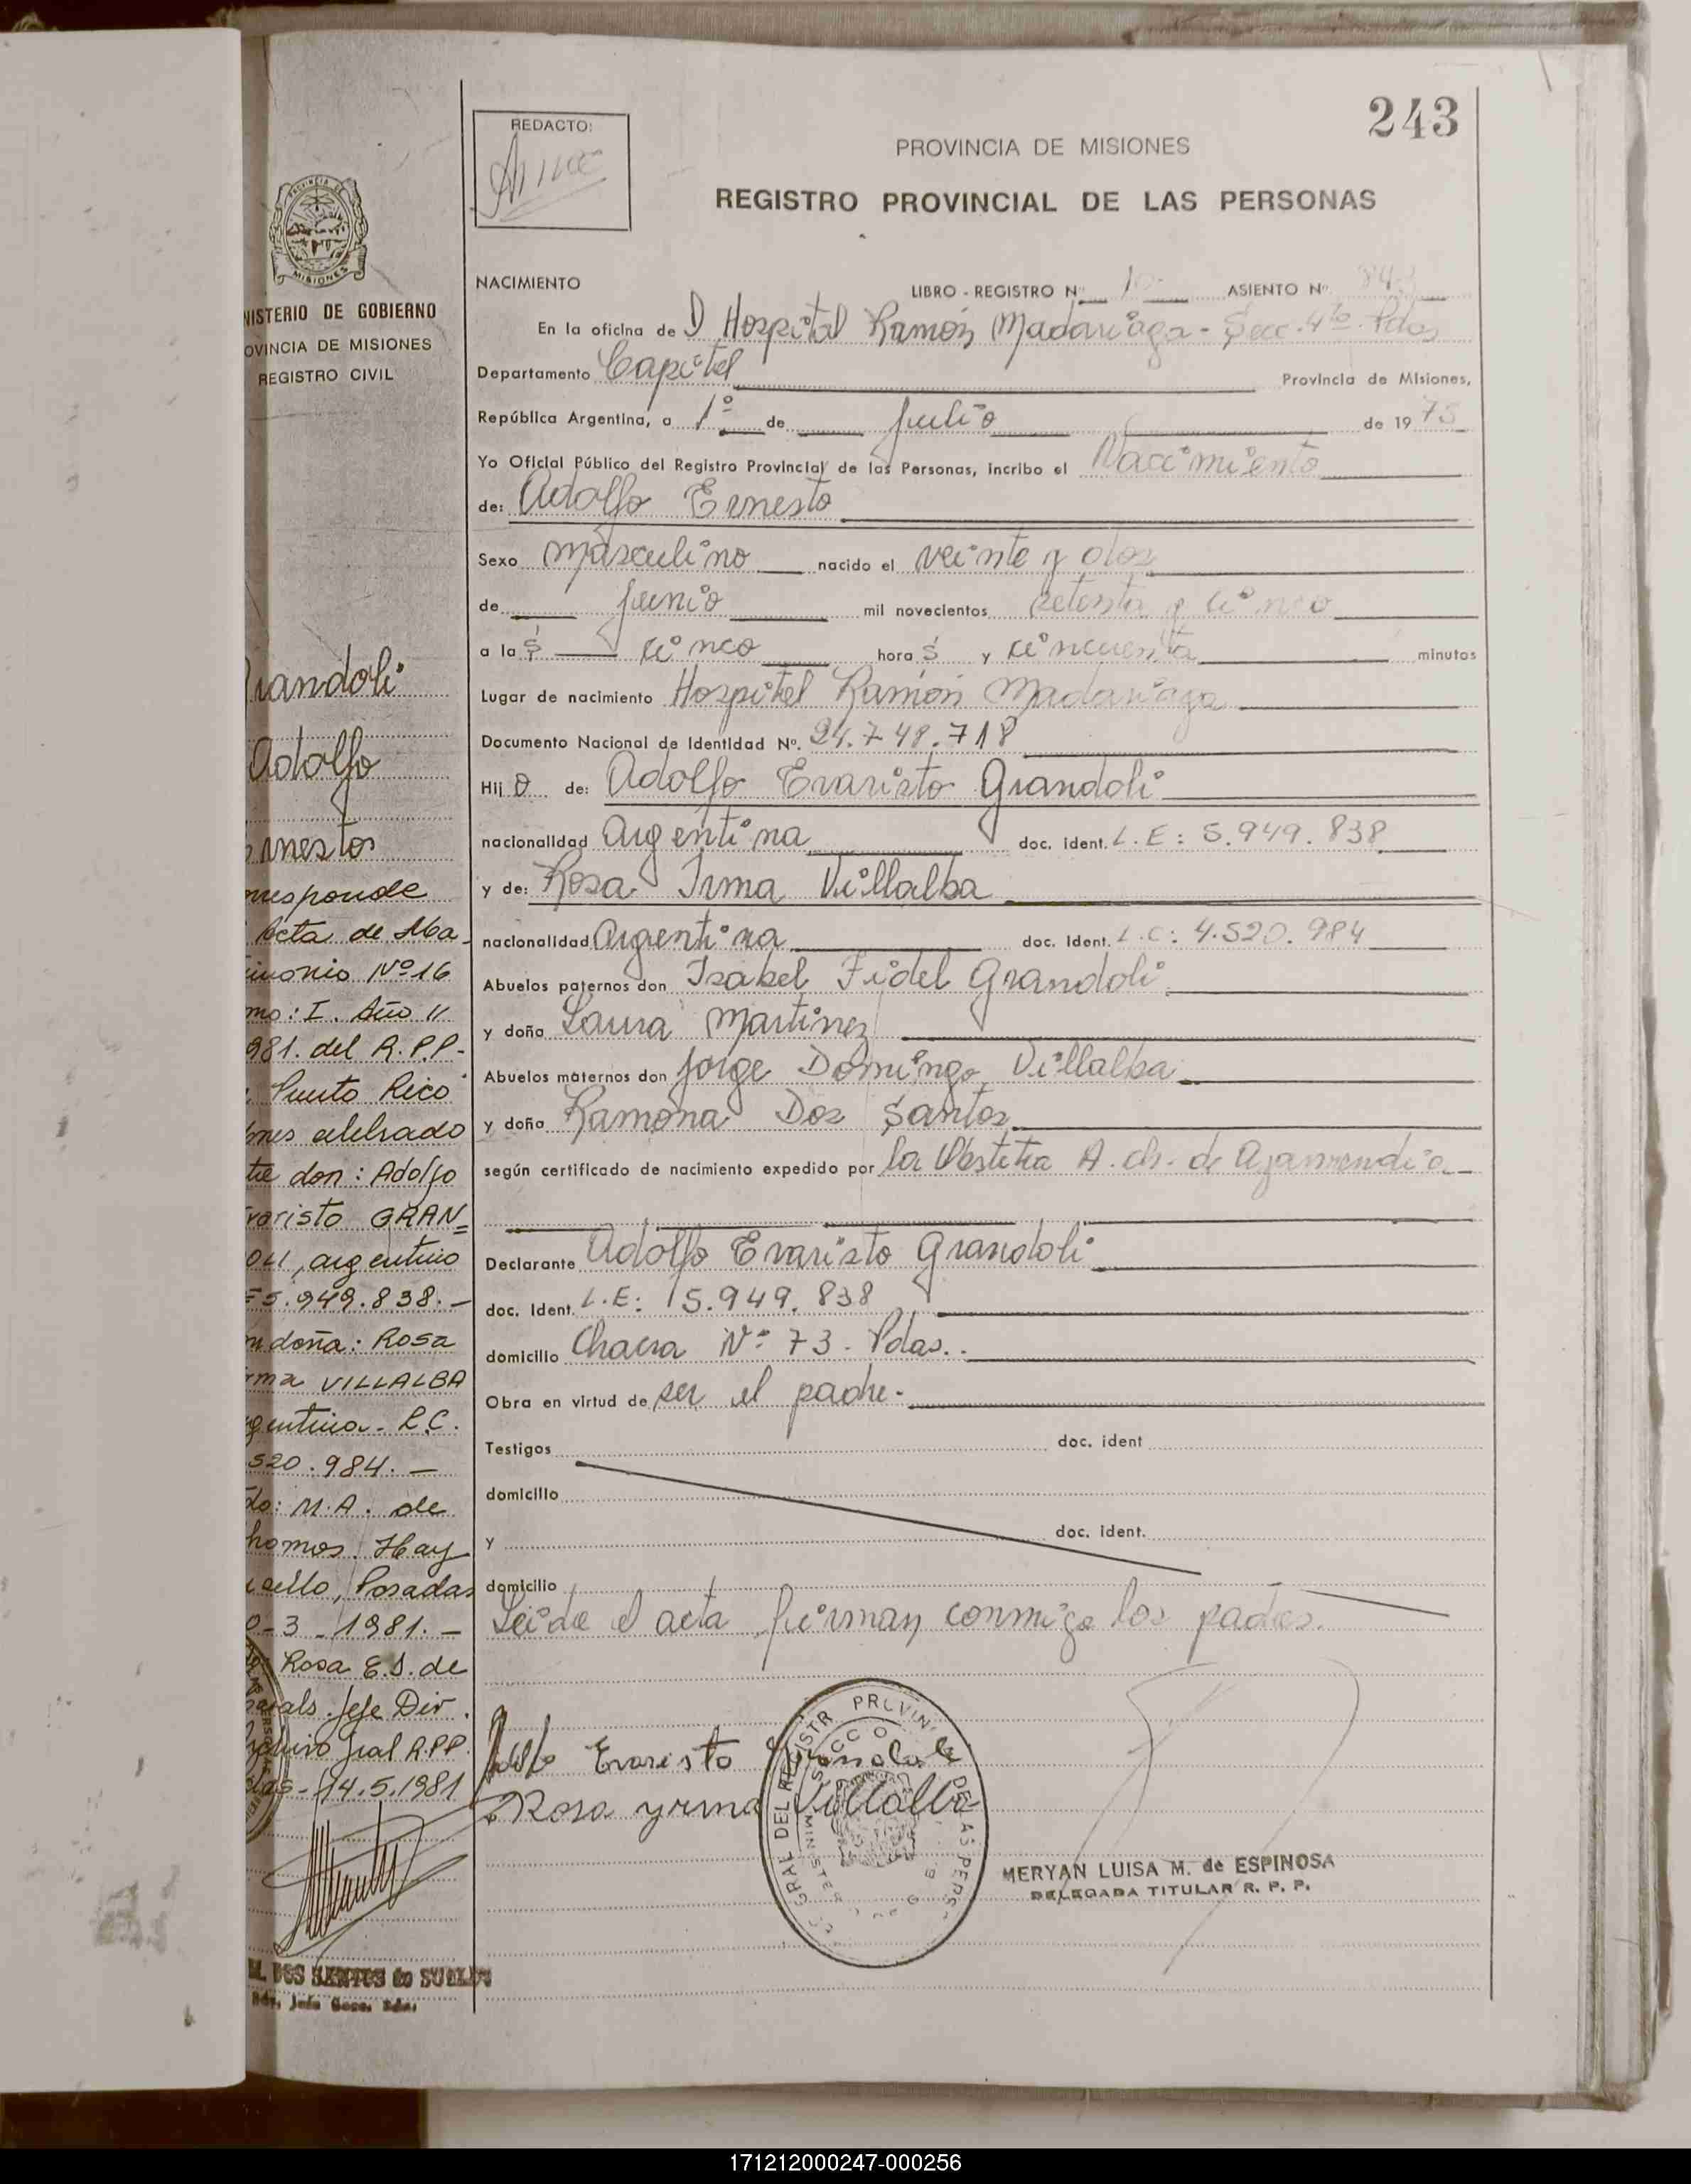 243
REDACTO:
PROVINCIA DE MISIONES
REGISTRO PROVINCIAL DE LAS PERSONAS
NACIMIENTO
LIBRO - REGISTRO Nº ASIENTO Nº
En la oficina de D Hospital Ramón Madariaga - Secc. 4ta. Pdas
Departamento Capital Provincia de Misiones,
República Argentina, a 1º de Julio de 1975
Yo Oficial Público del Registro Provincial de las Personas, incribo el Nacimiento
de: Adolfo Ernesto
Sexo Masculino nacido el veinte y dos
de Junio mil novecientos setenta y cinco
a las cinco horas y cincuenta minutos
Lugar de nacimiento Hospital Ramón Madariaga
Documento Nacional de Identidad Nº. 24.748.718
Hijo de: Adolfo Evaristo Grandoli
nacionalidad Argentina doc. ident. L.E: 5.949.838
y de: Rosa Irma Villalba
nacionalidad Argentina doc. Ident. L.C: 4.520.984
Abuelos paternos don Isabel Fidel Grandoli
y doña Laura Martinez
Abuelos maternos don Jorge Domingo Villalba
y doña Ramona Dos Santos
según certificado de nacimiento expedido por la Obstetra A. ch. de Azarmendia
Declarante Adolfo Evaristo Grandoli
doc. Ident. L.E: 5.949.838
domicilio Chacra Nº 73 - Pdas.
Obra en virtud de ser el padre.
Testigos doc. ident
domicilio
y doc. ident.
domicilio
Leida el acta firman conmigo los padres.
Evaristo
Rosa yrma Villalba
MERYAN LUISA M. de ESPINOSA
DELEGADA TITULAR R. P. P.
PROVINCIA DE
MISIONES
NISTERIO DE GOBIERNO
OVINCIA DE MISIONES
REGISTRO CIVIL
randoli
Adolfo
rnesto
rresponde
Acta de Ma-
imonio Nº 16
mo: I. Año 11
981. del R.P.P-
Puerto Rico
ones celebrado
tre don: Adolfo
varisto GRAN=
OLI, argentino
5.949.838.-
n doña: Rosa
rma VILLALBA
gentina - L.C.
520.984.-
do: M.A. de
homas. Hay
sello, Posadas
0-3-1981.-
Rosa E.S. de
Jefe Div.
rchivo Gral R.P.P.
das-14.5.1981
M. DOS SANTOS de
171212000247-000256